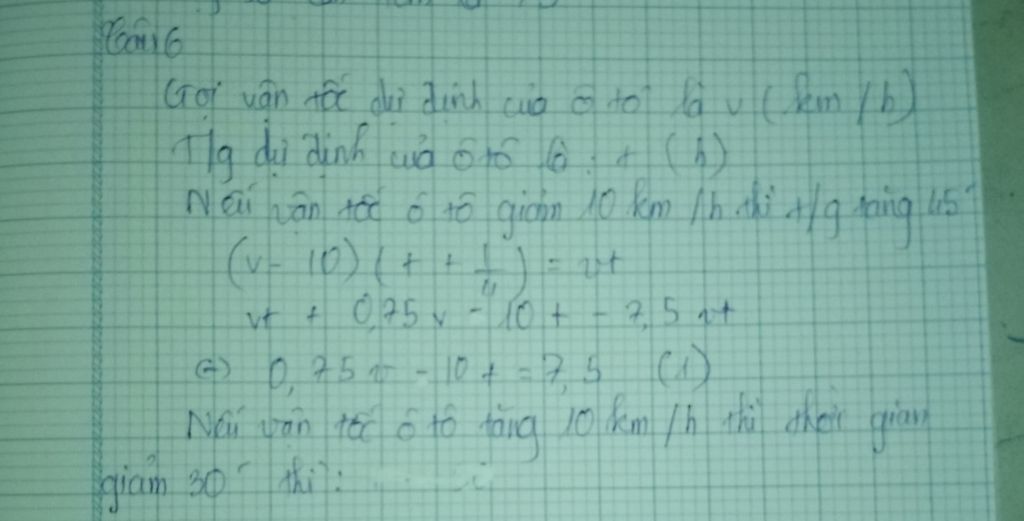 Câu 6
Gọi vận tốc dự định của ô tô là v (km/h)
T/g dự định của ô tô là: t (h)
Nếu vận tốc ô tô giảm 10 km/h thì t/g tăng 45'
(v - 10) (t + 1/4) = vt
vt + 0,75v - 10t - 7,5 vt
0,75v - 10t = 7,5 (1)
Nếu vận tốc ô tô tăng 10 km/h thì thời gian
giảm 30' thì: